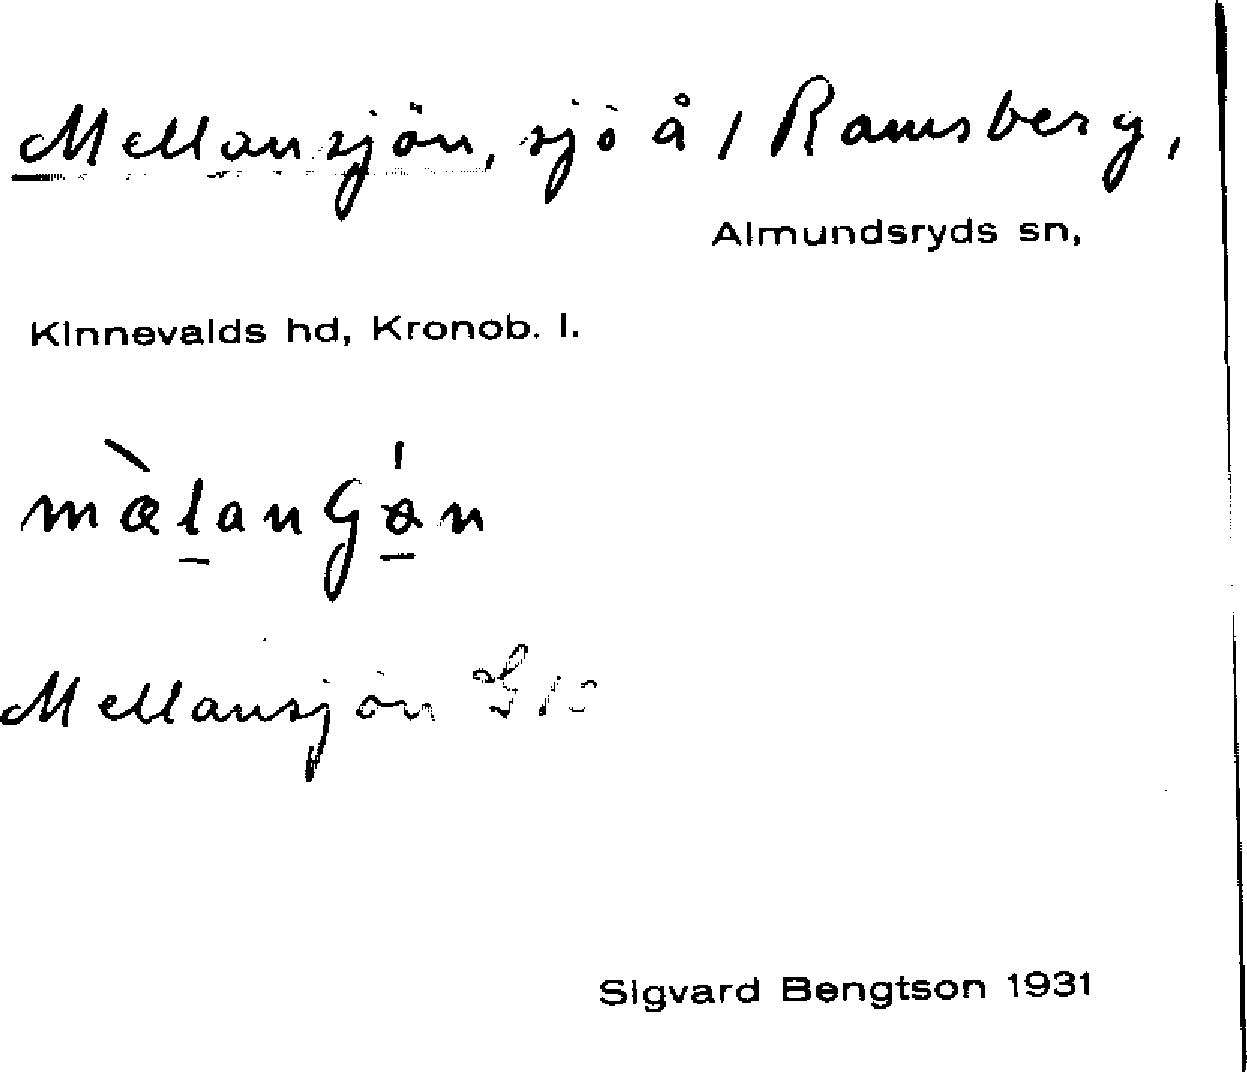 Mellansjön, sjö å 1 Ramsberg,
Almundsryds sn,
Kinnevalds hd, Kronob. l.
Mellansjön G 10
Sigvard Bengtson 1931